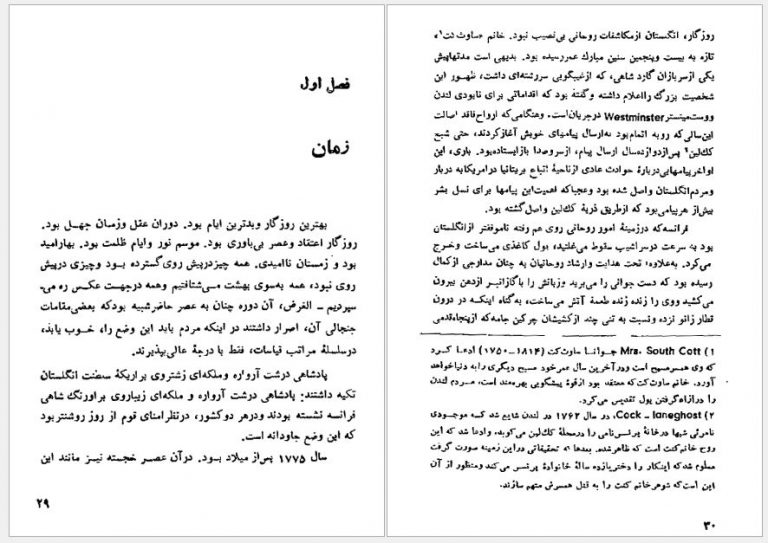 فصل اول
زمان
بهترین روزگار وبدترین ایام بود. دوران عقل وزمان جهل بود.
روزگار اعتقاد وعصر بی‌باوری بود. موسم نور وایام ظلمت بود. بهارامید
بود و زمستان ناامیدی. همه چیزدرپیش روی‌گسترده بود وچیزی درپیش
روی نبود، همه به‌سوی بهشت می‌شتافتیم وهمه درجهت عکس ره می-
سپردیم ـ الغرض، آن دوره چنان به عصر حاضرشبیه بودکه بعضی‌مقامات
جنجالی آن، اصرار داشتند در اینکه مردم باید این وضع را، خوب یابد،
درسلسلهٔ مراتب قیاسات، فقط با درجهٔ عالی‌بپذیرند.
پادشاهی درشت آرواره وملکه‌ای زشتروی براریکهٔ سلطنت انگلستان
تکیه داشتند: پادشاهی درشت آرواره و ملکه‌ای زیباروی براورنگ شاهی
فرانسه نشسته بودند ودرهر دوکشور، درنظرامنای قوم از روز روشنتربود
که این وضع جاودانه است.
سال ۱۷۷۵ پس‌از میلاد بـود. درآن عصـر خجسته نیـز مانند این
۲۹
روزگار، انگلستان ازمکاشفات روحانی بی‌نصیب نبود. خانم «ساوث‌کت»۱،
تازه به بیست وپنجمین سنین مبارک عمررسیده بود. بدیهی است مدتهاپیش
یکی ازسربازان گارد شاهی، که ازغیبگویی سررشته‌ای داشت، ظهـور این
شخصیت بزرگ رااعلام داشته وگفتهٔ بود که اقداماتی برای نابودی لندن
ووست‌مینسترWestminster درجریان‌است. وهنگامی‌که ارواح‌فاقد اصالت
این‌سالی‌که روبه اتمام‌بود به‌ارسال پیامهای خویش آغازکردند، حتی شبح
کاک‌لین۲ پس‌ازدوازده‌سال ارسال پیام، ازسروصدا بازایستاده‌بود. باری، این
اواخرپیامهایی‌دربارهٔ حوادث عادی ازناحیهٔ اتباع بریتانیا درامریکابه دربار
ومردم‌انگلستان واصل شده بود وعجبا‌که اهمیت‌این پیامها برای نسل بشر
بیش‌از هرپیامی‌بود که ازطریق ذریهٔ کاک‌لین واصل‌گشته بود.
فرانسه‌که درزمینهٔ امور روحانی روی هم رفته ناموفقتر ازانگلستان
بود به سرعت درسراشیب سقوط می‌غلتید، پول کاغذی می‌ساخت وخـرج
می‌کرد. به‌علاوه تحت هدایت وارشاد روحانیان به چنان مدارجی ازکمال
رسیده بود که دست جوانی را می‌برید وزبانش را باگازانبر ازدهن بیرون
می‌کشید ووی را زنده زنده طعمهٔ آتش می‌ساخت، به‌گناه اینکـه در درون
قطار زانو نزده ونسبت به تنی چند ازکشیشان چرکین جامه‌که ازپنجاه‌قدمی
۱) Mrs. South Cott جوانـا ساوث‌کت (۱۸۱۴ـ۱۷۵۰) ادعا کـرد
که وی همسرمسیح است ودرآخرین سال عمرخود مسیح دیگری را به دنیاخواهد
آورد. خانم ساوث‌کت‌که معتقد بود ازقوهٔ پیشگویی بهره‌مند است، مـردم لندن
را درازاه‌گرفتن پول تقدیس می‌کرد.
۲) Cock - laneghost، در سال ۱۷۶۲ در لندن شایع شد کـه موجـودی
نامرئی شبها درخانهٔ پرنسزنامی را درمحلهٔ کاک‌لین می‌کوبد. وادعا شد که این
روح خانم‌کنت است که ظاهرشده. بعدها به تحقیقاتی دراین زمینه صورت گرفت
معلوم شدکه اینکاررا دختریازده سالهٔ خانوادهٔ پرنسز می‌کند ومنظور از آن
این است‌که شوهرخانم کنت را به قتل همسرش متهم سازند.
۳۰